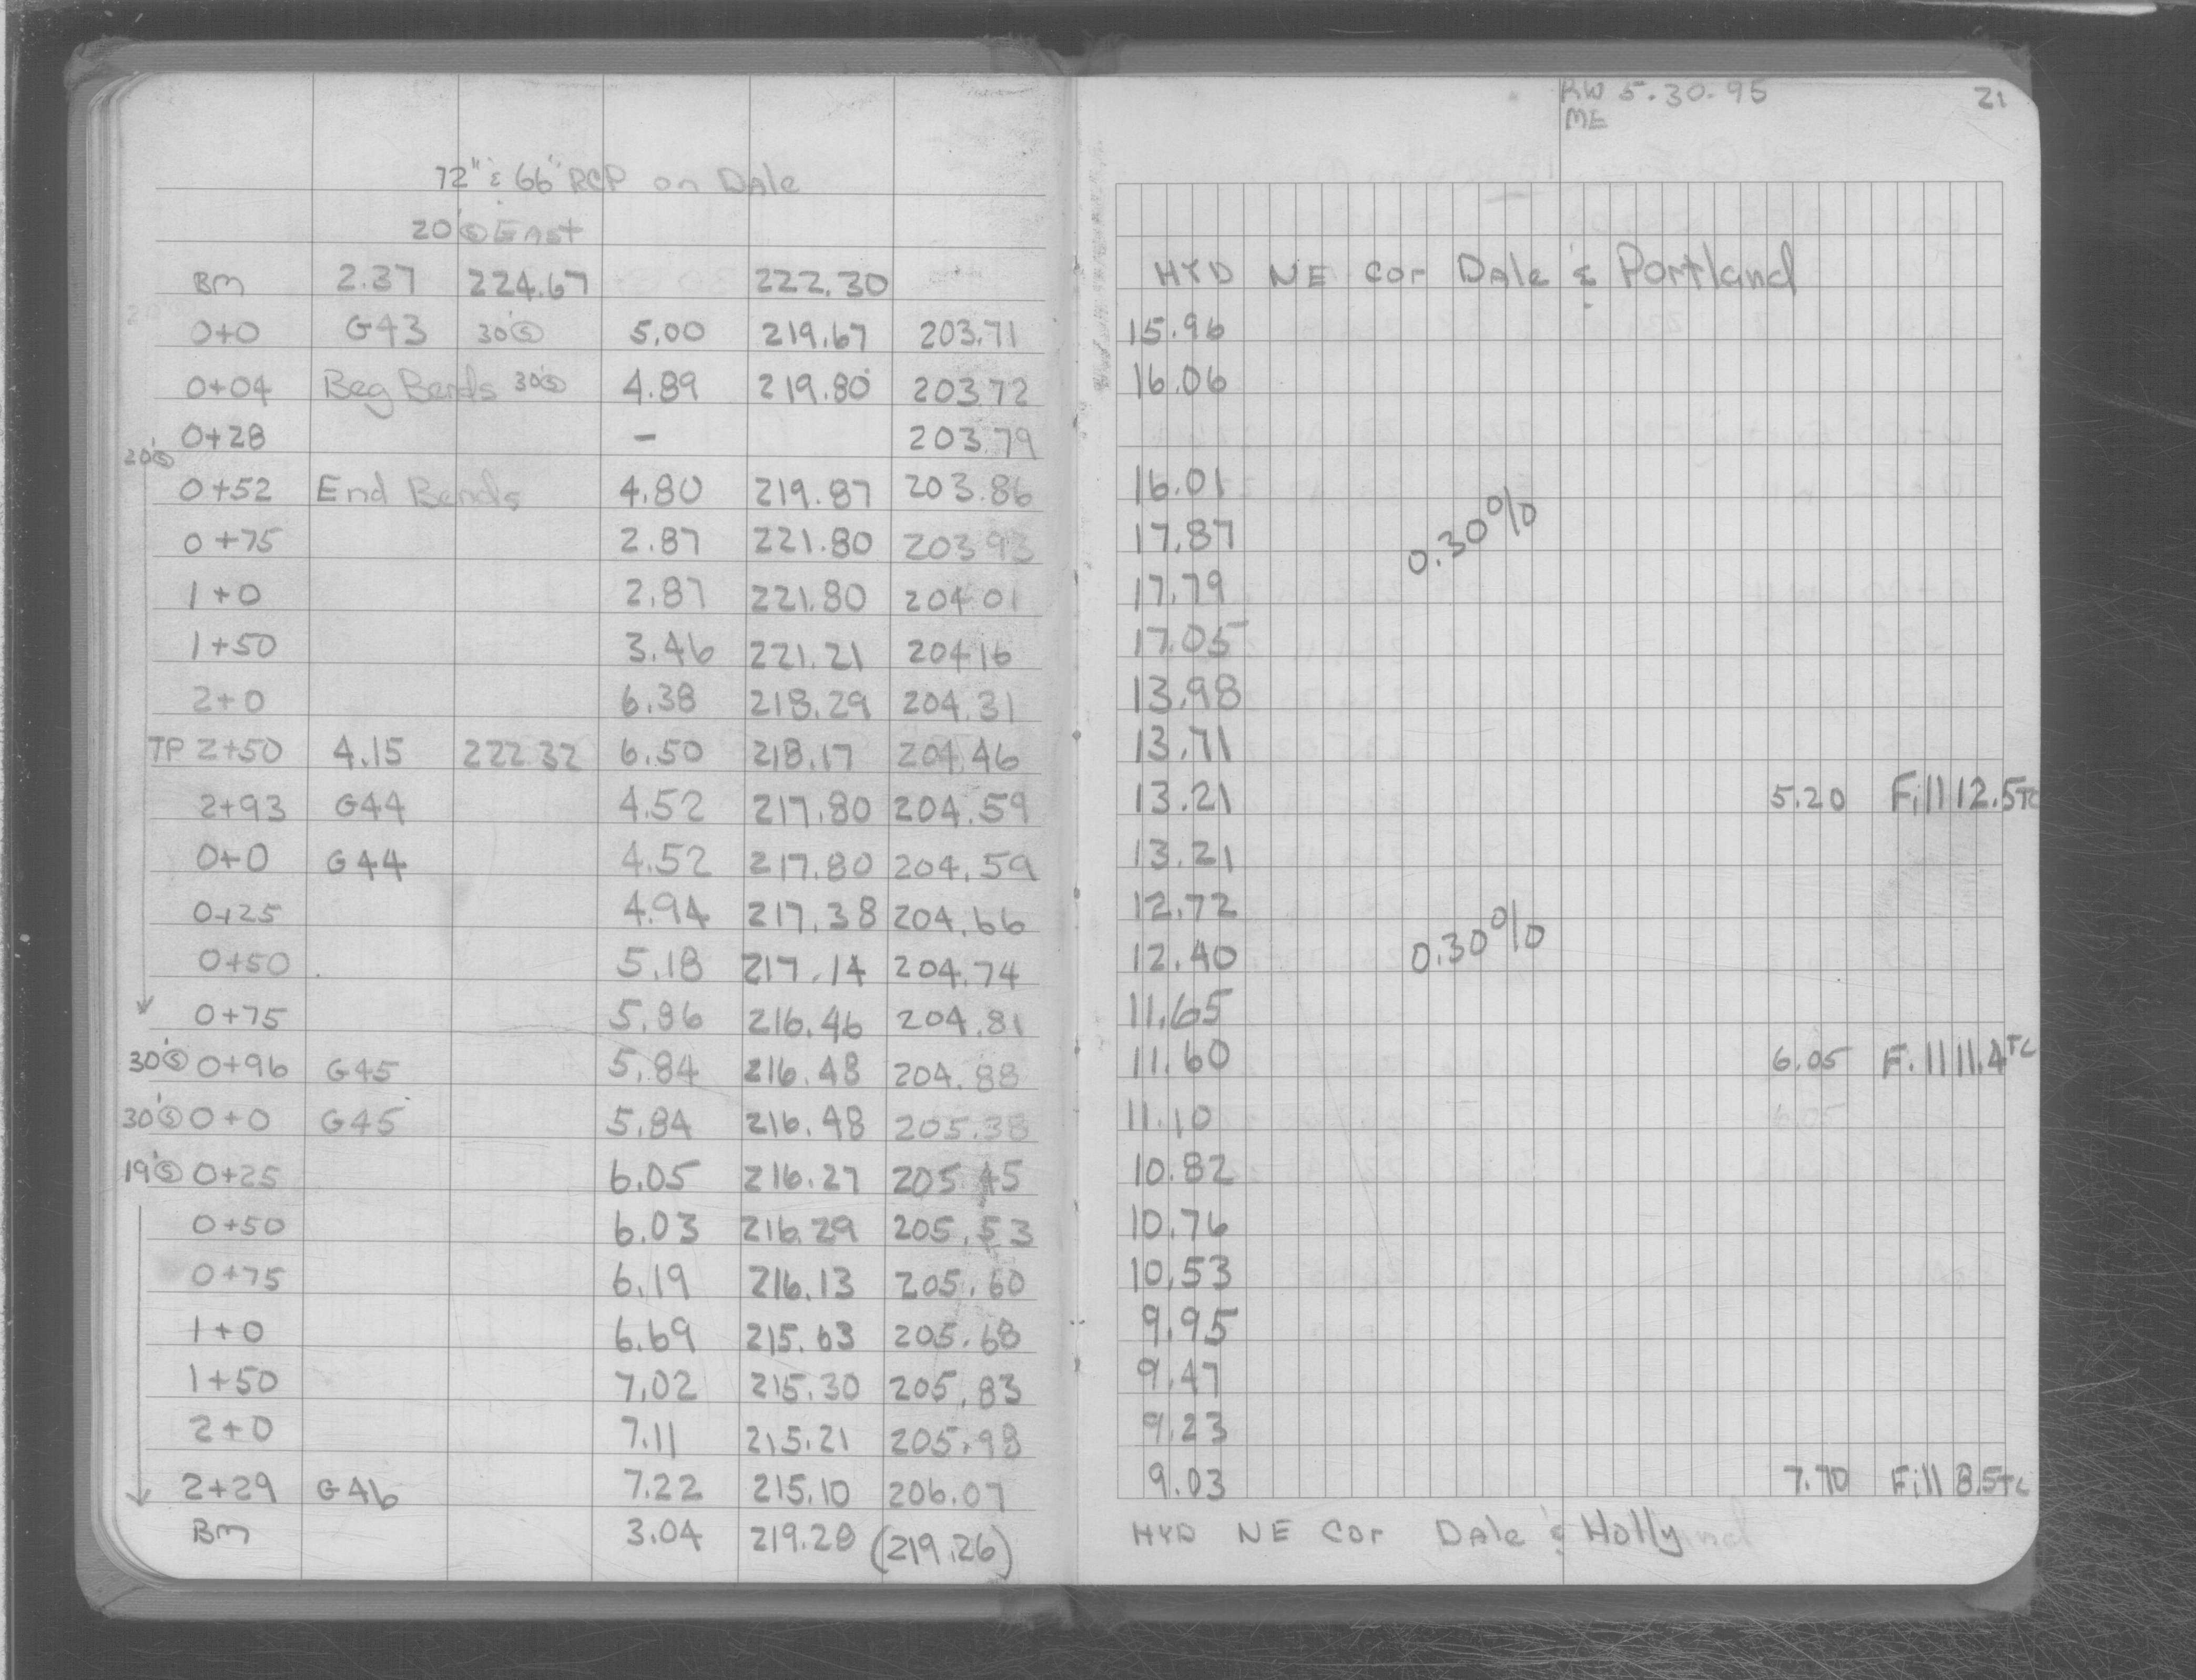 72" & 66" RCP on Dale
20' Ⓢ East
BM 2.37 224.67 222.30
0+0 G43 30'Ⓢ 5.00 219.67 203.71
0+04 Beg Bends 30'Ⓢ 4.89 219.80 203.72
0+28 - 203.79
20'Ⓢ
0+52 End Bends 4.80 219.87 203.86
0+75 2.87 221.80 203.93
1+0 2.87 221.80 204.01
1+50 3.46 221.21 204.16
2+0 6.38 218.29 204.31
TP 2+50 4.15 222.32 6.50 218.17 204.46
2+93 G44 4.52 217.80 204.59
0+0 G44 4.52 217.80 204.59
0+25 4.94 217.38 204.66
0+50 5.18 217.14 204.74
0+75 5.86 216.46 204.81
30'Ⓢ 0+96 G45 5.84 216.48 204.88
30'Ⓢ 0+0 G45 5.84 216.48 205.38
19'Ⓢ 0+25 6.05 216.27 205.45
0+50 6.03 216.29 205.53
0+75 6.19 216.13 205.60
1+0 6.69 215.63 205.68
1+50 7.02 215.30 205.83
2+0 7.11 215.21 205.98
2+29 G46 7.22 215.10 206.07
BM 3.04 219.28 (219.26)
RW 5.30.95 21
ME
HYD NE Cor Dale & Portland
15.96
16.06
16.01
0.30%
17.87
17.79
17.05
13.98
13.71
13.21 5.20 Fill 12.5 TC
13.21
12.72
0.30%
12.40
11.65
11.60 6.05 Fill 11.4 TC
11.10 6.05
10.82
10.76
10.53
9.95
9.47
9.23
9.03 7.70 Fill 8.5 TC
HYD NE Cor Dale & Holly